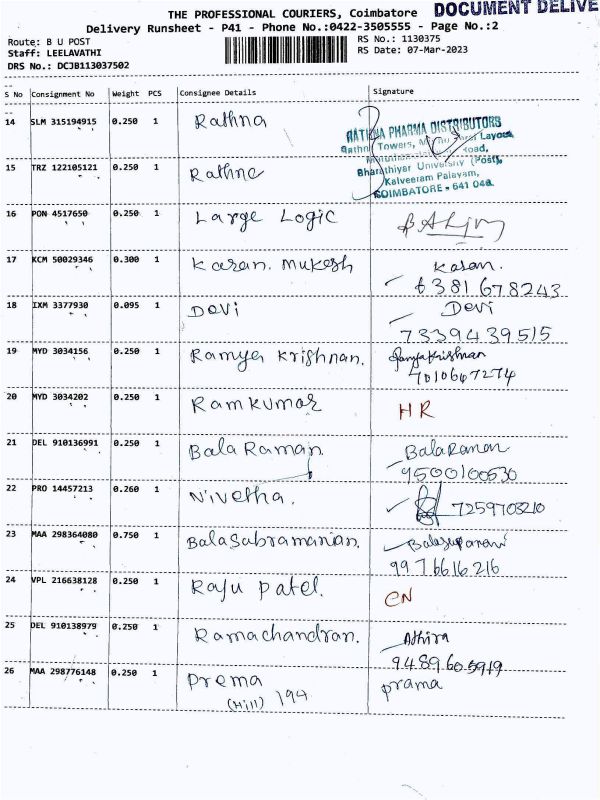 DOCUMENT DELIVE
THE PROFESSIONAL COURIERS, Coimbatore
Delivery Runsheet - P41 - Phone No.:0422-3505555 - Page No.:2
Route: B U POST RS No.: 1130375
Staff: LEELAVATHI RS Date: 07-Mar-2023
DRS No.: DCJB113037502
S No Consignment No Weight PCS Consignee Details Signature
14 SLM 315194915 0.250 1 Rathna
RATHNA PHARMA DISTRIBUTORS
Rathna Towers, Layout
Road,
Bharathiyar University (Post),
Kalveeram Palayam,
COIMBATORE - 641 046.
15 TRZ 122105121 0.250 1 Rathne
16 PON 4517650 0.250 1 Large Logic
17 KCM 50029346 0.300 1 Karan. Mukesh Karan.
6381678243
18 IXM 3377930 0.095 1 Devi Devi
7339439515
19 MYD 3034156 0.250 1 Ramya Krishnan. Ramya Krishnan
7010647274
20 MYD 3034202 0.250 1 Ramkumar HR
21 DEL 910136991 0.250 1 Bala Raman. BalaRaman
9500100530
22 PRO 14457213 0.260 1 Nivetha. 7259703210
23 MAA 298364080 0.750 1 BalaSubramanian.
9976616216
24 VPL 216638128 0.250 1 Raju Patel. CN
25 DEL 910138979 0.250 1 Ramachandran. Athira
9489605919
26 MAA 298776148 0.250 1 Prema prama
(Hill) 194